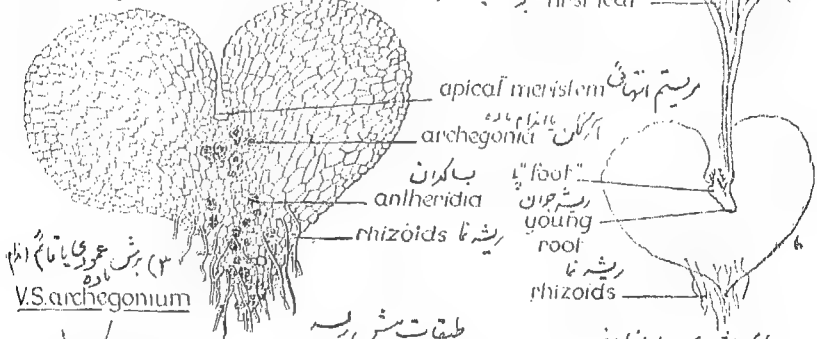 first leaf
apical meristem مریستم انتهائی
archegonia آرکگن یا اندام ماده
antheridia
rhizoids ریشه نما
"foot" پا
ریشه جوان
young root
ریشه نما
rhizoids
۳) برش عمودی یا قائم اندام ماده
V.S. archegonium
طبقات